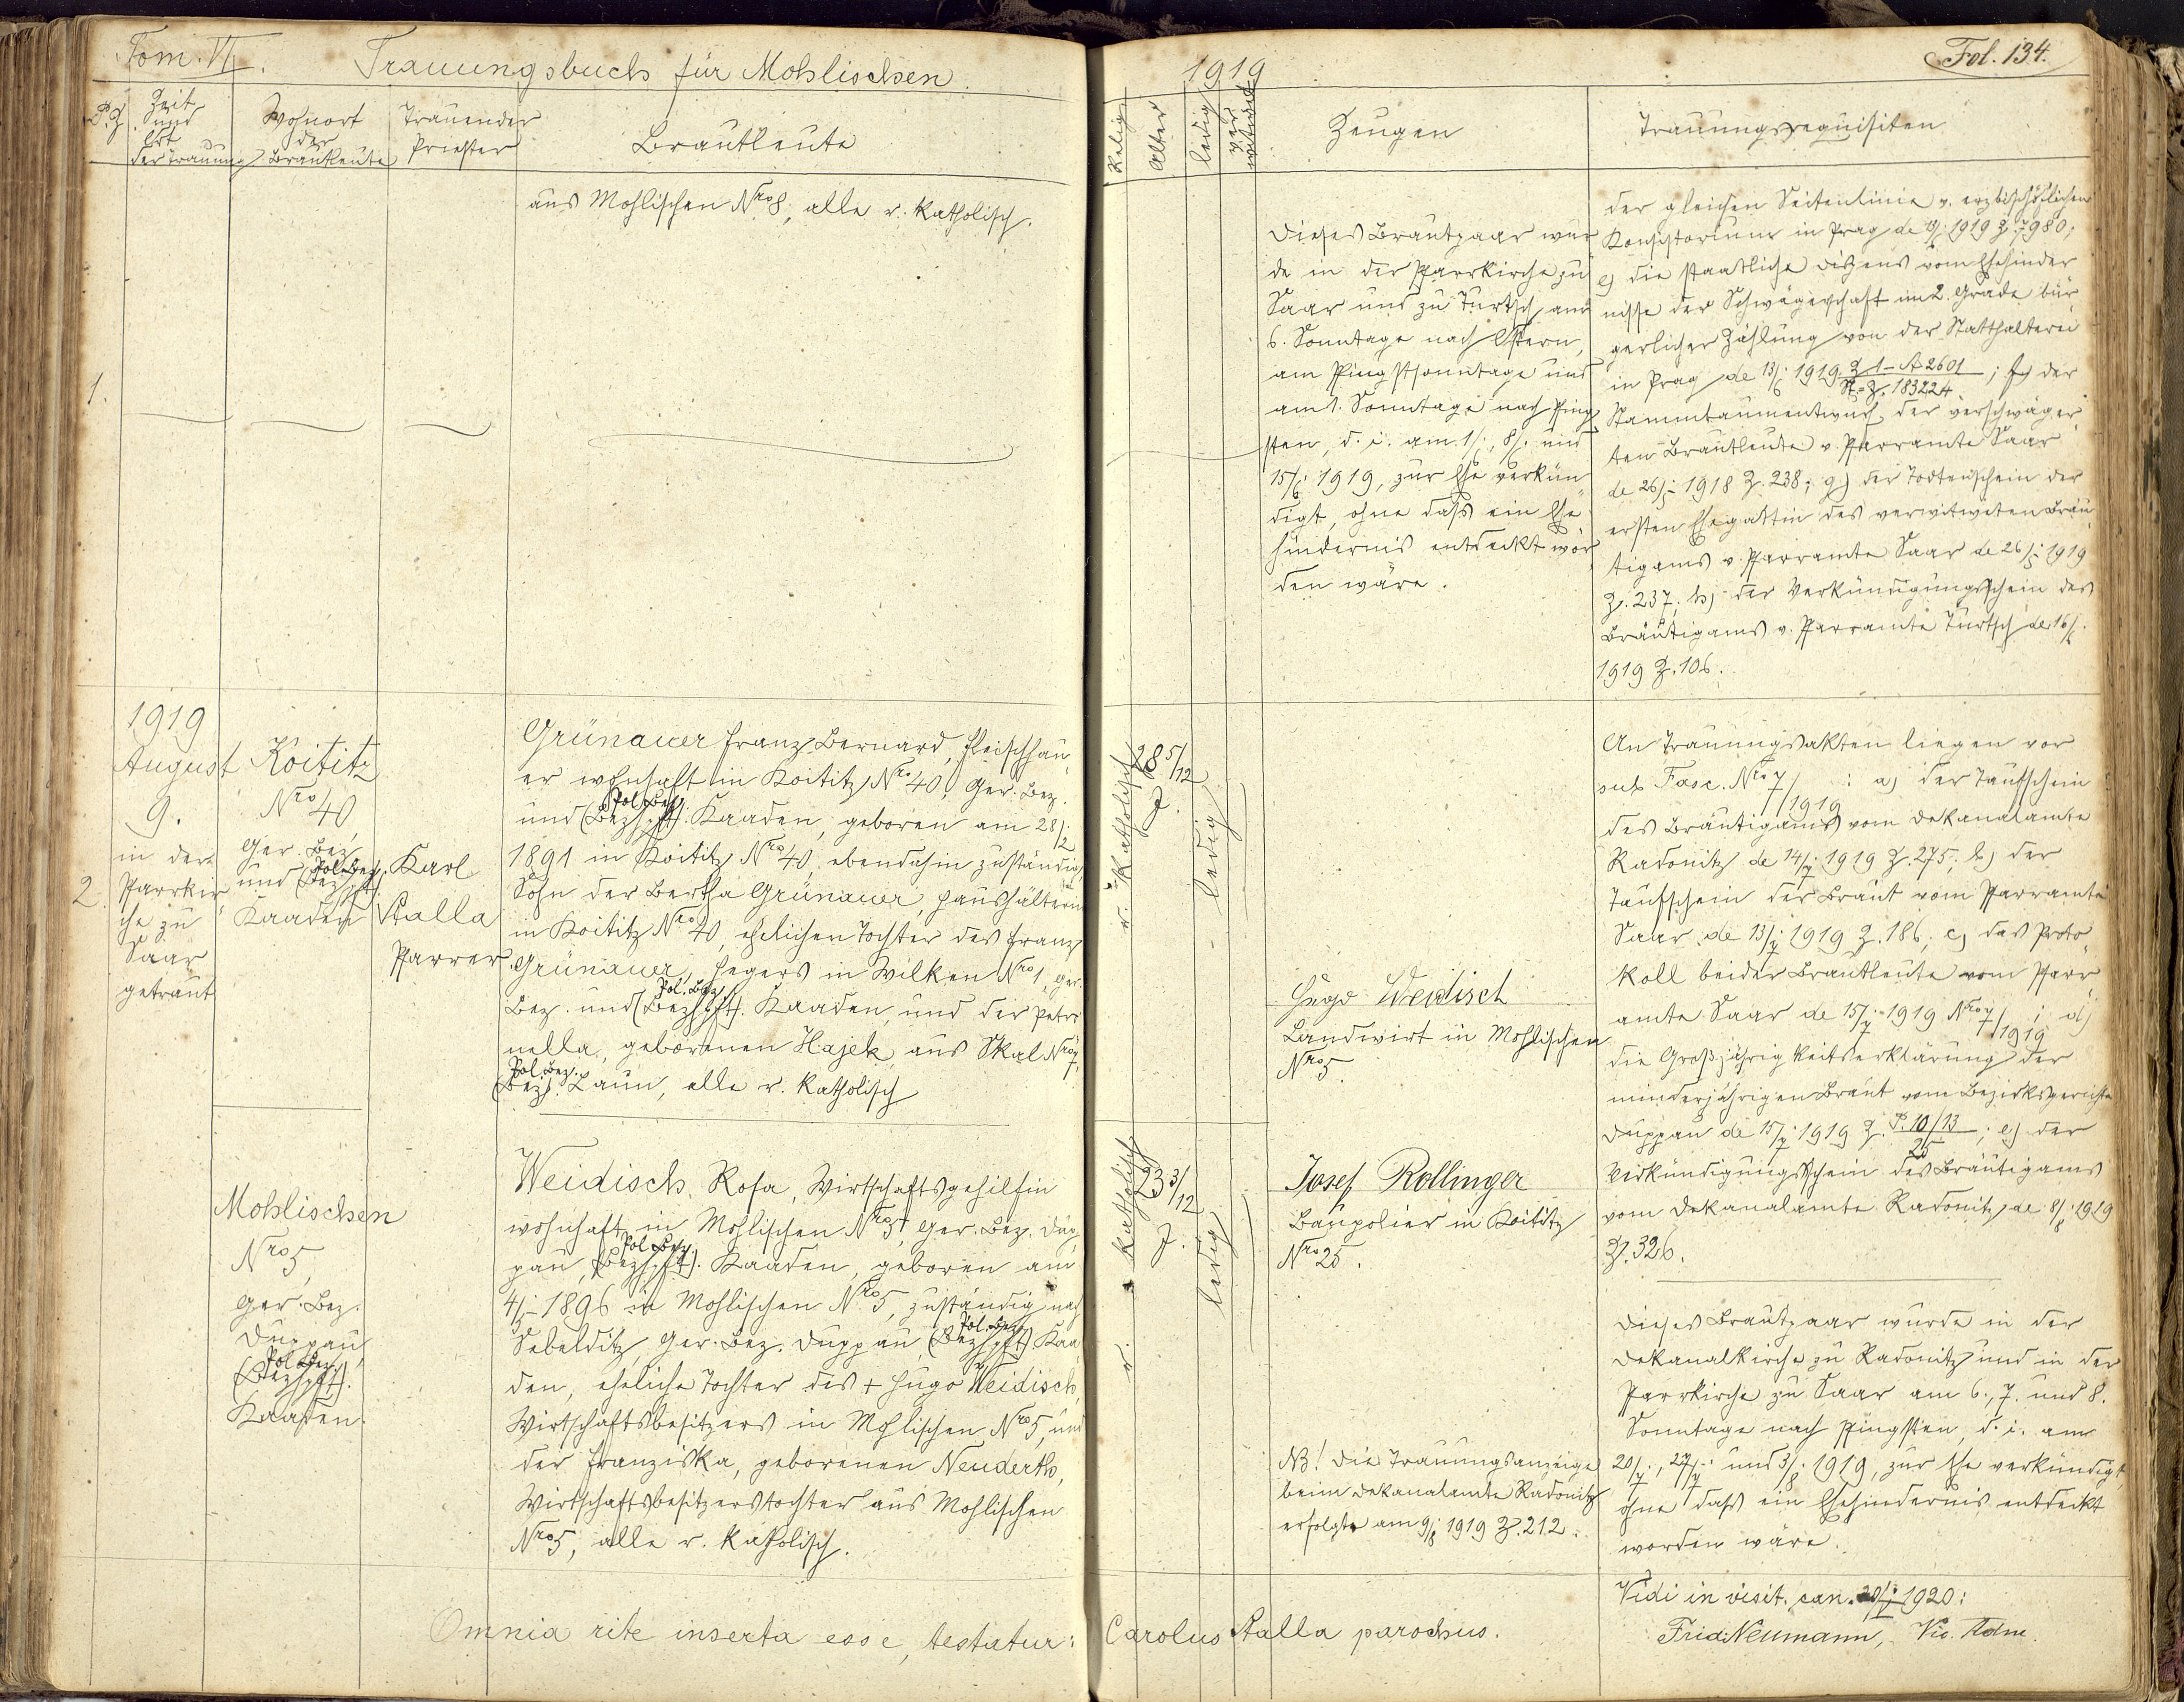 Tom. VI. Trauungsbuch für Mohlischen. 1919 Fol. 134.
P.Z.
Zeit
und
Ort
der Trauung
Wohnort
der
Brautleute
Trauender
Priester
Brautleute
Relig.
Alter
ledig
ver
witwet
Zeugen
Trauungsrequisiten
1.
aus Mohlischen Nro 8, alle r. katholisch.
Dieses Brautpaar wur
de in der Pfarrkirche zu
Saar und zu Turtsch am
6. Sonntage nach Ostern,
am Pfingstsonntage und
am 1. Sonntage nach Pfing
sten, d. i. am 1/6., 8/6. und
15/6. 1919, zur Ehe verkün
digt, ohne daß ein Ehe
hindernis entdeckt wor
den wäre.
der gleichen Seitenlinie v. erzbischöflichen
Konsistorium in Prag de 1919 Z. 7980;
e) die staatliche Dispens vom Ehehinder
nisse der Schwägerschaft im 2. Grade bür
gerlicher Zählung von der Statthalterei
in Prag de 13/6. 1919 Z 1-A 2601 / St.-Z. 183224; f) der
Stammbaumentwurf der verschwäger
ten Brautleute v. Pfarramte Saar
de 26/5. 1918 Z. 238; g) der Todtenschein der
ersten Ehegattin des verwitweten Bräu
tigams v. Pfarramte Saar de 26/5. 1919
Z. 237; h) der Verkündigungsschein des
Bräutigams v. Pfarramte Turtsch de 16/6.
1919 Z. 106.
2.
1919
August
9.
in der
Pfarrkir
che zu
Saar
getraut
Koititz
Nro 40
Ger. Bez.
Pol. Bez.
und (Bezhptt).
Kaaden
Karl
Stalla
Pfarrer
Grünauer Franz Bernard, Fleischhau
er wohnhaft in Koititz Nro 40, Ger. Bez.
Pol. Bez.
und (Bezhptt). Kaaden, geboren am 28/2.
1891 in Koititz Nro 40, ebendahin zuständig,
Sohn der Bertha Grünauer, Haushälterin
in Koititz Nro 40, ehelichen Tochter des Franz
Grünauer, Hegers in Wilken Nro 1, Ger.
Pol. Bez.
Bez. und (Bezhptt). Kaaden, und der Petro
nella, geborenen Hajek, aus Skal Nro 7,
Pol. Bez.
(Bez). Laun, alle r. katholisch
r. katholisch
28 5/12
J.
ledig
Hugo Weidisch
Landwirt in Mohlischen
Nro 5.
An Trauungsakten liegen vor
sub Fasc. Nro 7/1919: a) der Taufschein
des Bräutigams vom Dekanalamte
Radonitz de 14/7. 1919 Z. 275; b) der
Taufschein der Braut vom Pfarramte
Saar de 13/7. 1919 Z. 186; c) das Proto
koll beider Brautleute vom Pfarr
amte Saar de 15/7. 1919 Nro 7/1919; d)
die Großjährigkeitserklärung der
minderjährigen Braut vom Bezirksgerichte
Duppau de 15/7. 1919 Z. P. 10/13 / 25; e) der
Verkündigungsschein des Bräutigams
vom Dekanalamte Radonitz de 8/8. 1919
Z. 326.
Mohlischen
Nro 5,
Ger. Bez.
Duppau,
Pol. Bez.
(Bezhptt).
Kaaden.
Weidisch Rosa, Wirtschaftsgehilfin
wohnhaft in Mohlischen Nro 5, Ger. Bez. Dup
Pol. Bez.
pau, (Bezhptt). Kaaden, geboren am
4/5. 1896 in Mohlischen Nro 5, zuständig nach
Pol. Bez.
Sebeltitz, Ger. Bez. Duppau, (Bezhptt) Kaa
den, eheliche Tochter des + Hugo Weidisch,
Wirtschaftsbesitzers in Mohlischen Nro 5, und
der Franziska, geborenen Neuderth,
Wirtschaftsbesitzerstochter aus Mohlischen
Nro 5, alle r. katholisch.
r. katholisch
23 3/12
J.
ledig
Josef Rollinger
Baupolier in Koititz
Nro 25.
NB! Die Trauungsanzeige
beim Dekanalamte Radonitz
erfolgte am 9/8. 1919 Z. 212.
Dieses Brautpaar wurde in der
Dekanalkirche zu Radonitz und in der
Pfarrkirche zu Saar am 6., 7. und 8.
Sonntage nach Pfingsten, d. i. am
20/7., 27/7. und 3/8. 1919, zur Ehe verkündigt,
ohne daß ein Ehehindernis entdeckt
worden wäre.
Omnia rite inserta esse, testatur: Carolus Stalla parochus.
Vidi in visit. can. 1920:
Frid. Neumann, Vic. Adm.